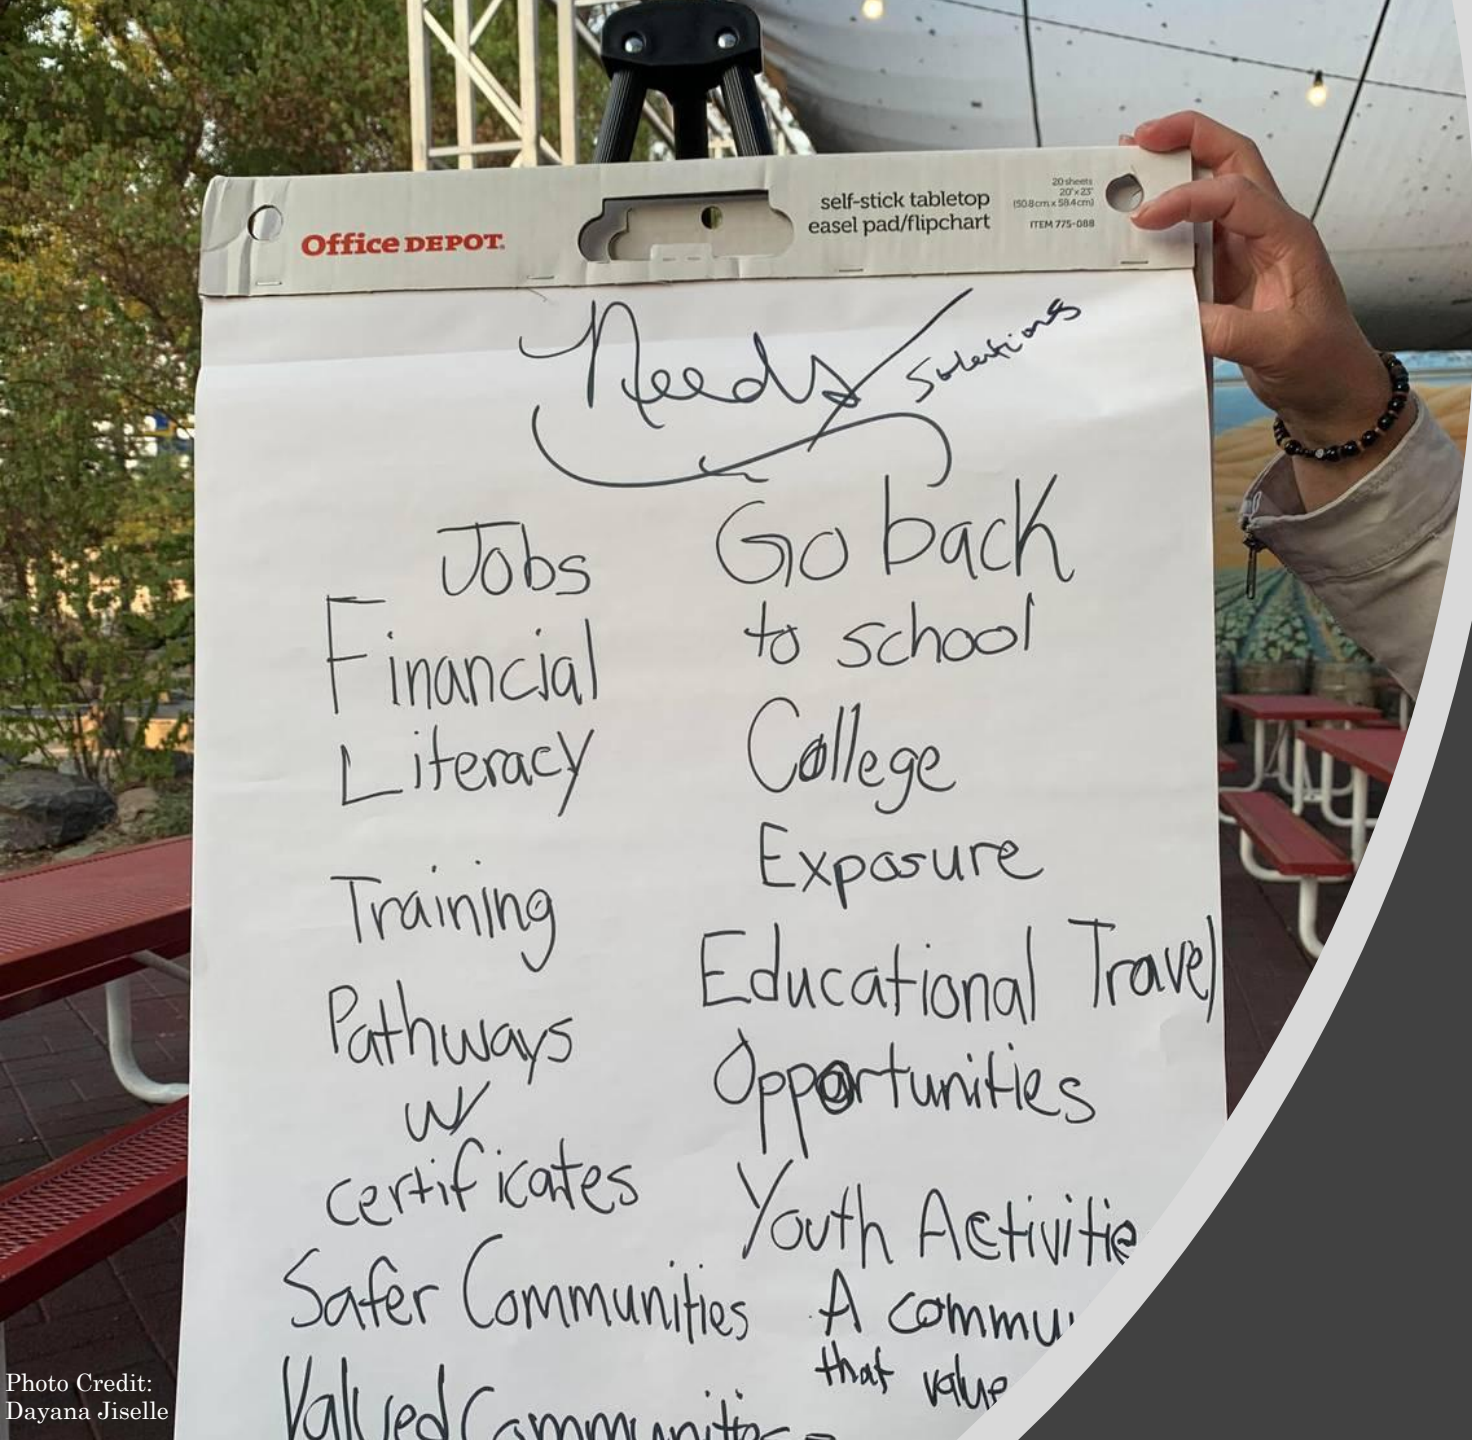 Office DEPOT.
self-stick tabletop
easel pad/flipchart
20 sheets
20"x23"
(50.8cm x 58.4cm)
ITEM 775-088
Needs/Solutions
Jobs
Financial
Literacy
Training
Pathways
w/
certificates
Safer Communities
Valued Communities
Go back
to school
College
Exposure
Educational Travel
Opportunities
Youth Activitie
A commu
that value
Photo Credit:
Dayana Jiselle